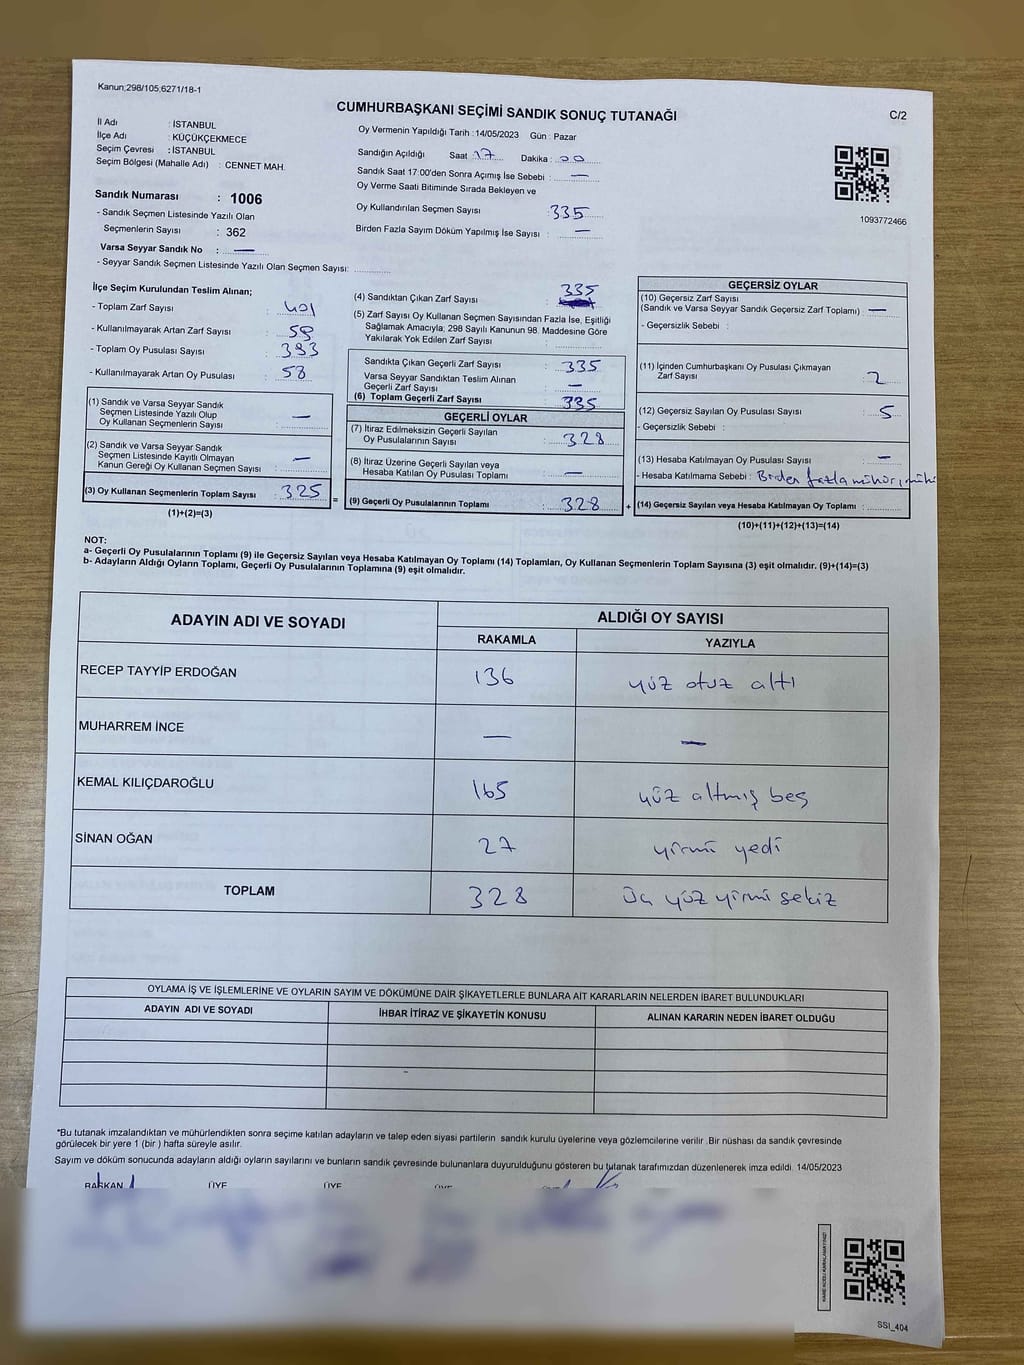 Kanun;298/105,6271/18-1
CUMHURBAŞKANI SEÇİMİ SANDIK SONUÇ TUTANAĞI
C/2
İl Adı : İSTANBUL
İlçe Adı : KÜÇÜKÇEKMECE
Seçim Çevresi : İSTANBUL
Seçim Bölgesi (Mahalle Adı) : CENNET MAH.
Sandık Numarası : 1006
- Sandık Seçmen Listesinde Yazılı Olan
Seçmenlerin Sayısı : 362
Varsa Seyyar Sandık No : —
- Seyyar Sandık Seçmen Listesinde Yazılı Olan Seçmen Sayısı: ..............
Oy Vermenin Yapıldığı Tarih : 14/05/2023 Gün : Pazar
Sandığın Açıldığı Saat 17 Dakika : 00
Sandık Saat 17:00'den Sonra Açımış İse Sebebi : —
Oy Verme Saati Bitiminde Sırada Bekleyen ve
Oy Kullandırılan Seçmen Sayısı : 335
Birden Fazla Sayım Döküm Yapılmış İse Sayısı : —
1093772466
İlçe Seçim Kurulundan Teslim Alınan;
- Toplam Zarf Sayısı : 401
- Kullanılmayarak Artan Zarf Sayısı : 58
- Toplam Oy Pusulası Sayısı : 393
- Kullanılmayarak Artan Oy Pusulası : 58
(1) Sandık ve Varsa Seyyar Sandık
Seçmen Listesinde Yazılı Olup
Oy Kullanan Seçmenlerin Sayısı : —
(2) Sandık ve Varsa Seyyar Sandık
Seçmen Listesinde Kayıtlı Olmayan
Kanun Gereği Oy Kullanan Seçmen Sayısı : —
(3) Oy Kullanan Seçmenlerin Toplam Sayısı : 325 =
(1)+(2)=(3)
(4) Sandıktan Çıkan Zarf Sayısı : 335
(5) Zarf Sayısı Oy Kullanan Seçmen Sayısından Fazla İse, Eşitliği
Sağlamak Amacıyla; 298 Sayılı Kanunun 98. Maddesine Göre
Yakılarak Yok Edilen Zarf Sayısı :
Sandıkta Çıkan Geçerli Zarf Sayısı : 335
Varsa Seyyar Sandıktan Teslim Alınan
Geçerli Zarf Sayısı : —
(6) Toplam Geçerli Zarf Sayısı : 335
GEÇERLİ OYLAR
(7) İtiraz Edilmeksizin Geçerli Sayılan
Oy Pusulalarının Sayısı : 328
(8) İtiraz Üzerine Geçerli Sayılan veya
Hesaba Katılan Oy Pusulası Toplamı : —
(9) Geçerli Oy Pusulalarının Toplamı : 328 +
GEÇERSİZ OYLAR
(10) Geçersiz Zarf Sayısı
(Sandık ve Varsa Seyyar Sandık Geçersiz Zarf Toplamı) : —
- Geçersizlik Sebebi :
(11) İçinden Cumhurbaşkanı Oy Pusulası Çıkmayan
Zarf Sayısı : 2
(12) Geçersiz Sayılan Oy Pusulası Sayısı : 5
- Geçersizlik Sebebi :
(13) Hesaba Katılmayan Oy Pusulası Sayısı : —
- Hesaba Katılmama Sebebi : Birden fazla mühür,
(14) Geçersiz Sayılan veya Hesaba Katılmayan Oy Toplamı :
(10)+(11)+(12)+(13)=(14)
NOT:
a- Geçerli Oy Pusulalarının Toplamı (9) ile Geçersiz Sayılan veya Hesaba Katılmayan Oy Toplamı (14) Toplamları, Oy Kullanan Seçmenlerin Toplam Sayısına (3) eşit olmalıdır. (9)+(14)=(3)
b- Adayların Aldığı Oyların Toplamı, Geçerli Oy Pusulalarının Toplamına (9) eşit olmalıdır.
ADAYIN ADI VE SOYADI
ALDIĞI OY SAYISI
RAKAMLA YAZIYLA
RECEP TAYYİP ERDOĞAN 136 yüz otuz altı
MUHARREM İNCE — —
KEMAL KILIÇDAROĞLU 165 yüz altmış beş
SİNAN OĞAN 27 yirmi yedi
TOPLAM 328 üç yüz yirmi sekiz
OYLAMA İŞ VE İŞLEMLERİNE VE OYLARIN SAYIM VE DÖKÜMÜNE DAİR ŞİKAYETLERLE BUNLARA AİT KARARLARIN NELERDEN İBARET BULUNDUKLARI
ADAYIN ADI VE SOYADI İHBAR İTİRAZ VE ŞİKAYETİN KONUSU ALINAN KARARIN NEDEN İBARET OLDUĞU
*Bu tutanak imzalandıktan ve mühürlendikten sonra seçime katılan adayların ve talep eden siyasi partilerin sandık kurulu üyelerine veya gözlemcilerine verilir .Bir nüshası da sandık çevresinde
görülecek bir yere 1 (bir ) hafta süreyle asılır.
Sayım ve döküm sonucunda adayların aldığı oyların sayılarını ve bunların sandık çevresinde bulunanlara duyurulduğunu gösteren bu tutanak tarafımızdan düzenlenerek imza edildi. 14/05/2023
BAŞKAN ÜYE ÜYE ÜYE
SSI_404